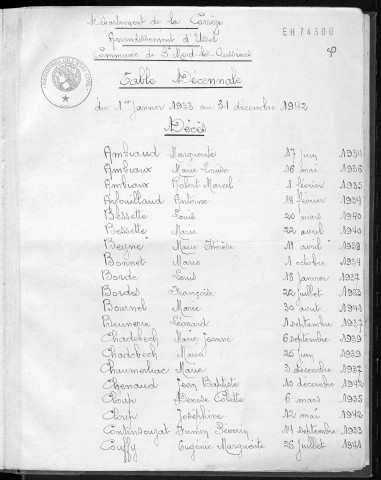 Département de la Corrèze
EH74300
Arrondissement d'Ussel
Commune de St Merd-la-Lapleau
Table Décennale
du 1er Janvier 1933 au 31 décembre 1942
Décès
Ambiaud Marguerite 17 juin 1934
Ambiaux Marie-Louise 16 mai 1936
Ambiaux Robert Marcel 1 février 1935
Anfouillaud Antoine 18 février 1934
Bessette Louis 20 mars 1940
Bessette Marie 22 avril 1940
Beyne Marie Thérèse 11 avril 1939
Bonnet Marie 1 octobre 1934
Borde Louis 18 janvier 1937
Bordes Françoise 22 juillet 1933
Bournol Marie 30 août 1941
Brunerie Léonard 1 septembre 1937
Chadebech Marie Jeanne 6 septembre 1939
Chadebech Marie 25 juin 1939
Chaumerliac Marie 3 décembre 1937
Chenaud Jean Baptiste 10 décembre 1942
Cloup Denise Colette 6 mars 1935
Cloup Joséphine 12 mai 1942
Continsouzat Firmin 14 septembre 1933
Couffy Eugénie Marguerite 26 juillet 1941